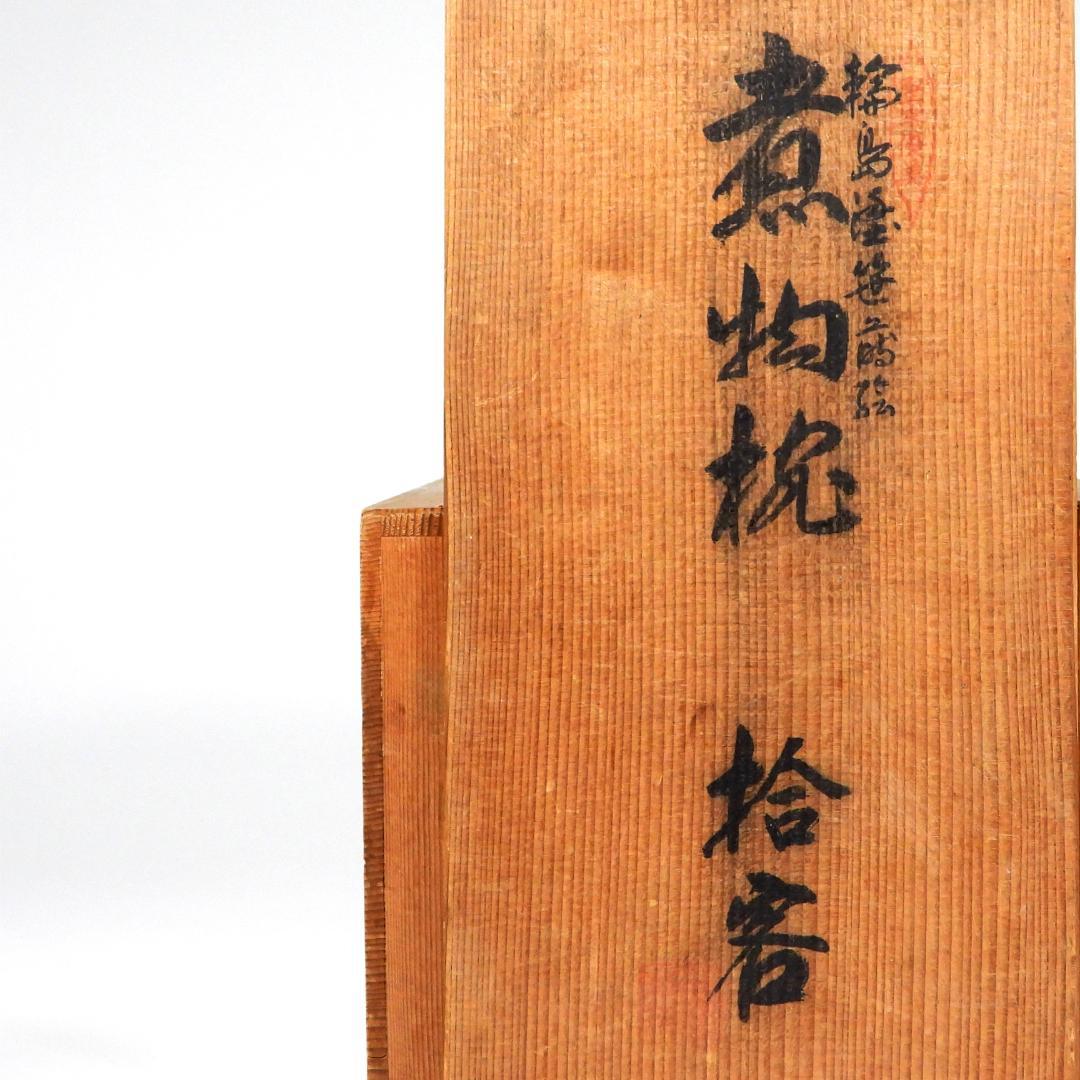 輪島塗笹之蒔絵
煮物椀 拾客